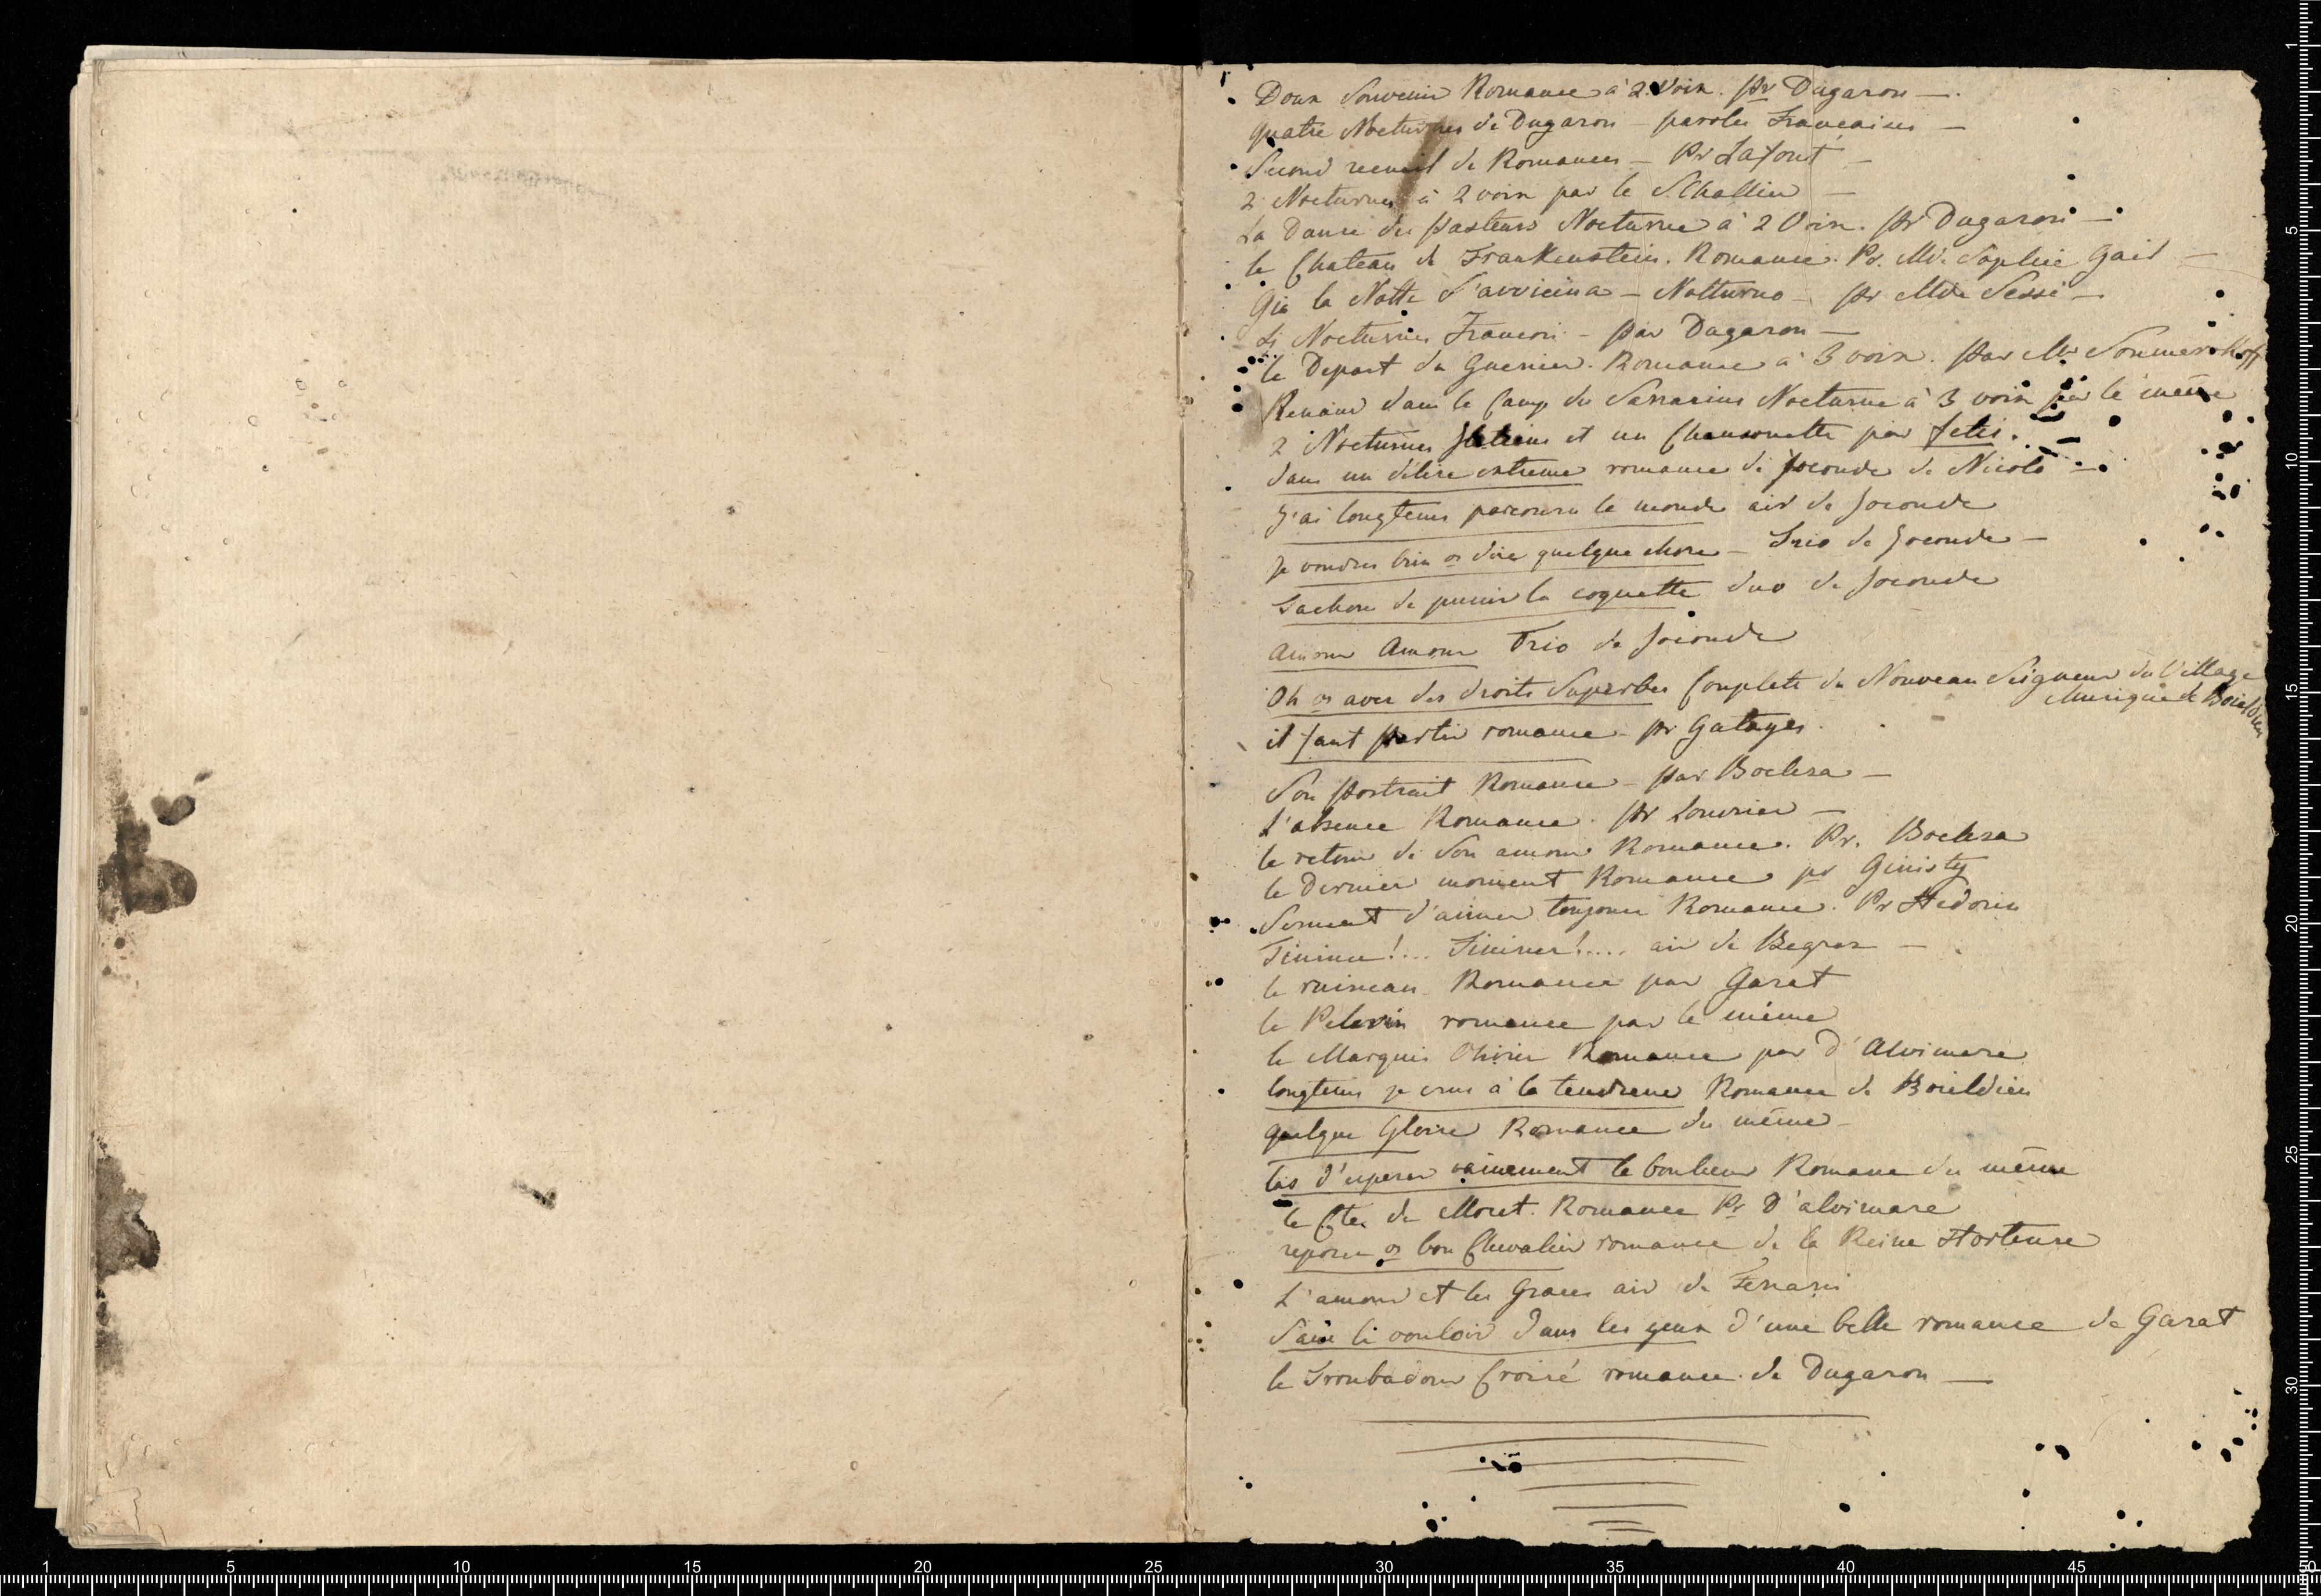 Doux Souvenir Romance à 2 Voix. pr Dugazon —.
quatre Nocturnes de Dugazon — paroles Françaises —
Second recueil de Romances — Pr Lafont —
2 Nocturnes à 2 voix par le
La Danse des pasteurs Nocturne à 2 Voix. pr Dugazon —
le Chateau de Frankenstein. Romance. Pr. Mde Sophie Gail —
Gia la Notte S'avvicina — Notturno — pr Mde Sessi —
Nocturnes Francois — par Dugazon —
le Depart du Guerrier. Romance à 3 voix. par Mr
Renaud dans le Camp des Sarrasins Nocturne à 3 voix par le même
2 Nocturnes Italiens et un Chansonette par fetis.
dans un délire extreme romance de Joconde de Nicolo —
J'ai longtems parcouru le monde air de Joconde
Je voudrois bien vs dire quelque chose — Trio de Joconde —
Tachons de punir la coquette duo de Joconde
Amour Amour Trio de Joconde
Oh vs avez des droits Superbes Couplets du Nouveau Seigneur du Village
Musique de Boieldieu
il faut partir romance — pr Gatayes.
Son portrait Romance — par Bochsa —
L'absence Romance. pr Louvrier —
le retour de Son amour Romance. Pr. Bochsa
le Dernier moment Romance pr Ginisty
Serment d'aimer toujours Romance. Pr Hedouin
Femmes!... Femmes!.... air de Begrez —
le ruisseau Romance par Garat
le Pelerin romance par le même
le Marquis Olivier Romance par d'Alvimare
longtems je crus à la tendresse Romance de Boieldieu
quelque Gloire Romance du même —
las d'esperer vainement le bonheur Romance du même
le Cte de Moret. Romance Pr D'alvimare
reposez vs bon Chevalier romance de la Reine Hortense
L'amour et les Graces air de Ferrari
Sans le vouloir dans les yeux d'une belle romance de Garat
le Troubadour Croisé romance de Dugazon —